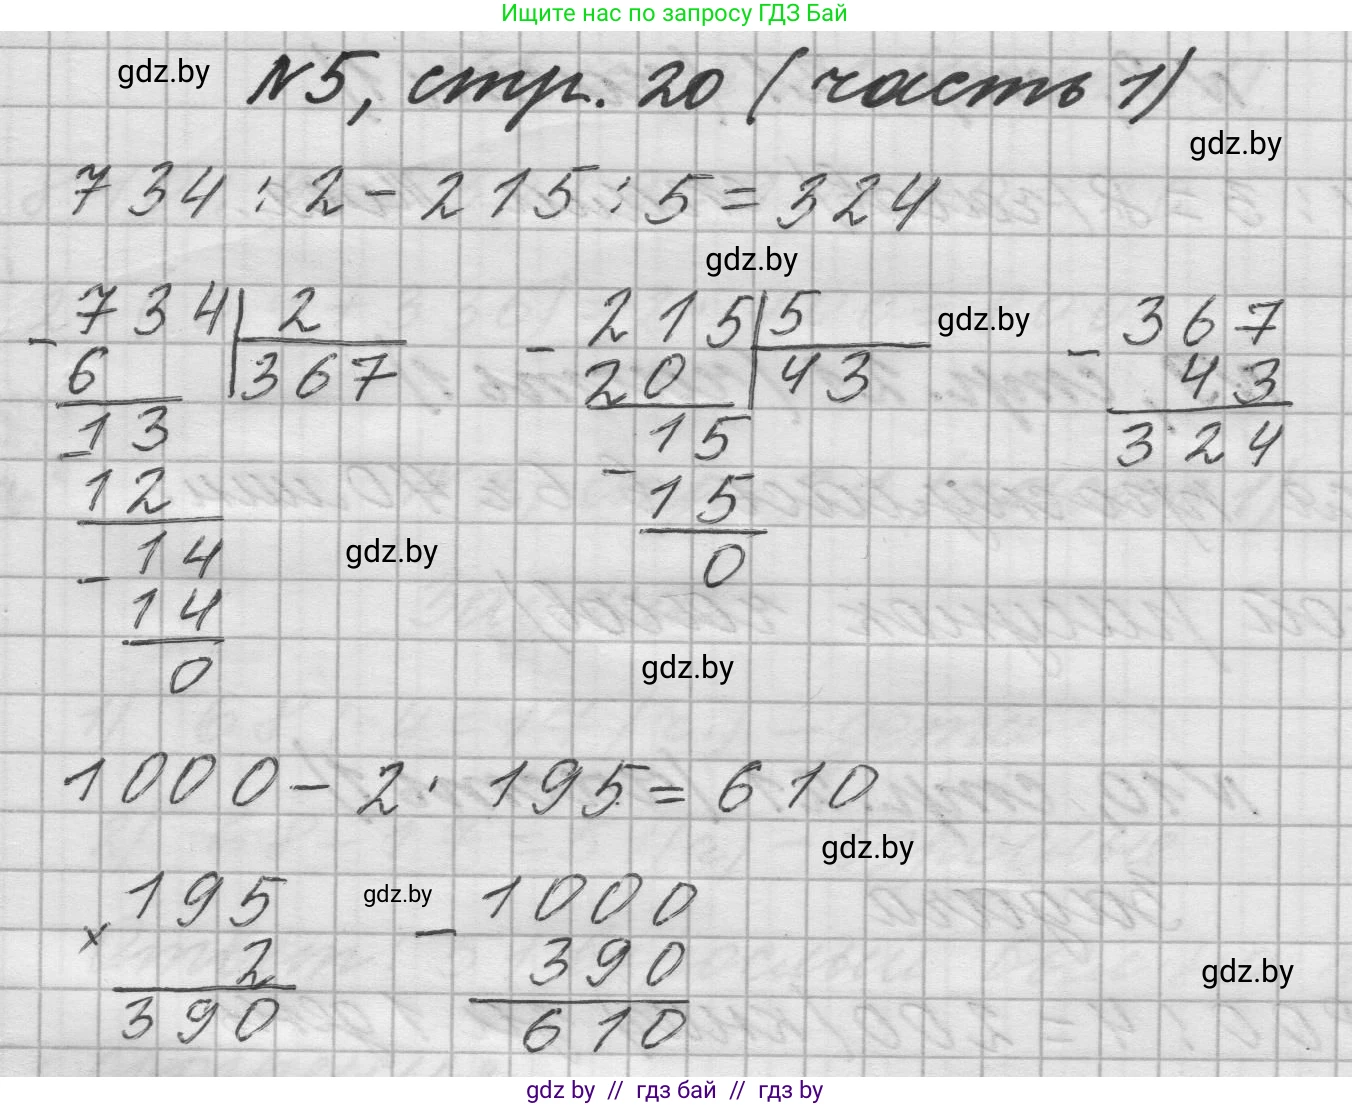 Ищите нас по запросу ГДЗ Бай
gdz.by
N5, стр. 20 (часть 1)
gdz.by
734 : 2 - 215 : 5 = 324
gdz.by
- 734 2
6 367
- 13
12
- 14
14
0
- 215 5
20 43
- 15
15
0
gdz.by
- 367
43
324
gdz.by
gdz.by
1000 - 2 · 195 = 610
gdz.by
195
× 2
390
gdz.by
- 1000
390
610
gdz.by
gdz by // гдз бай // гдз by